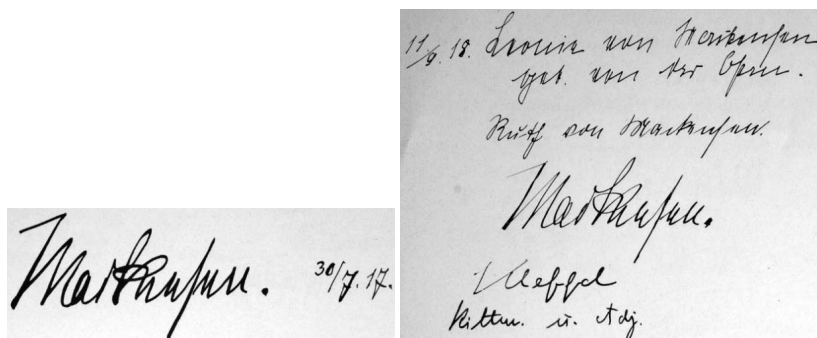 Mackensen. 30/7. 17.
11/9. 18. Leonie von Mackensen
geb. von der Osten.
Ruth von Mackensen.
Mackensen.
Rittm. u. Adj.